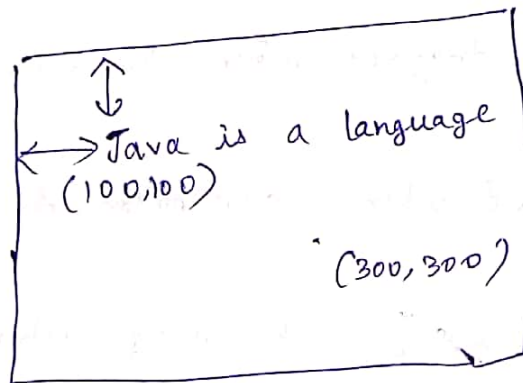 Java is a language
(100,100)
(300, 300)